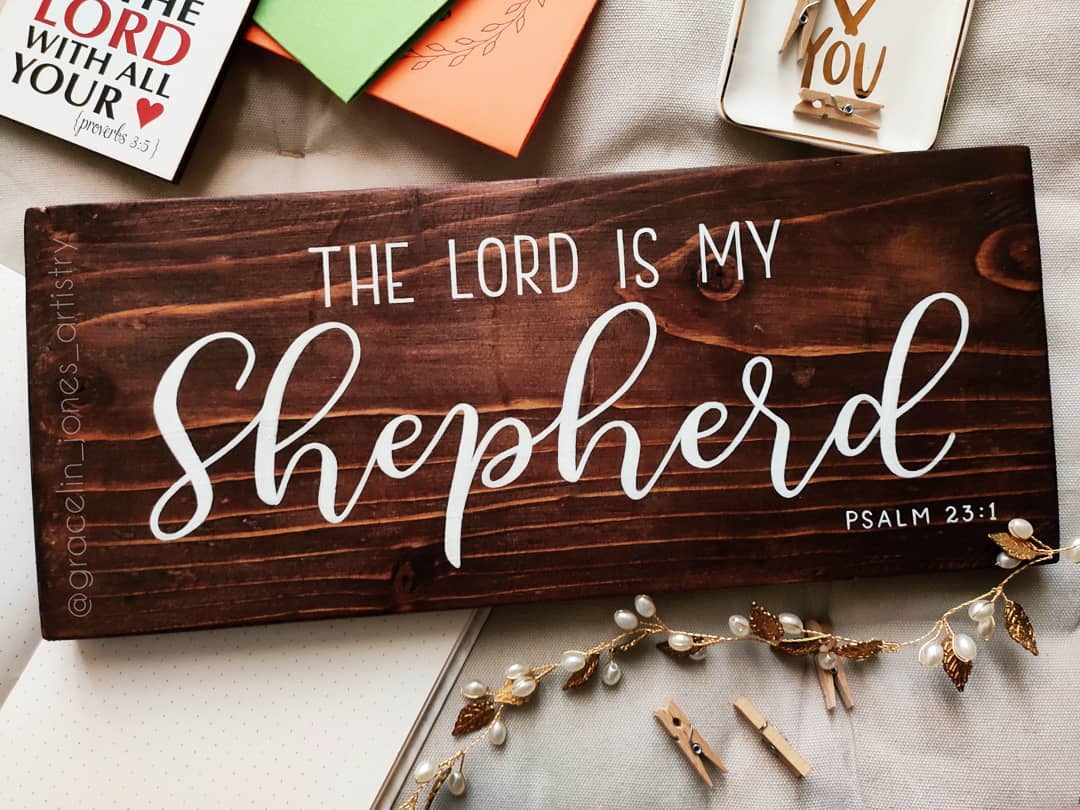 THE
LORD
WITH ALL
YOUR
{proverbs 3:5}
YOU
THE LORD IS MY
Shepherd
PSALM 23:1
@gracelin_jones_artistry